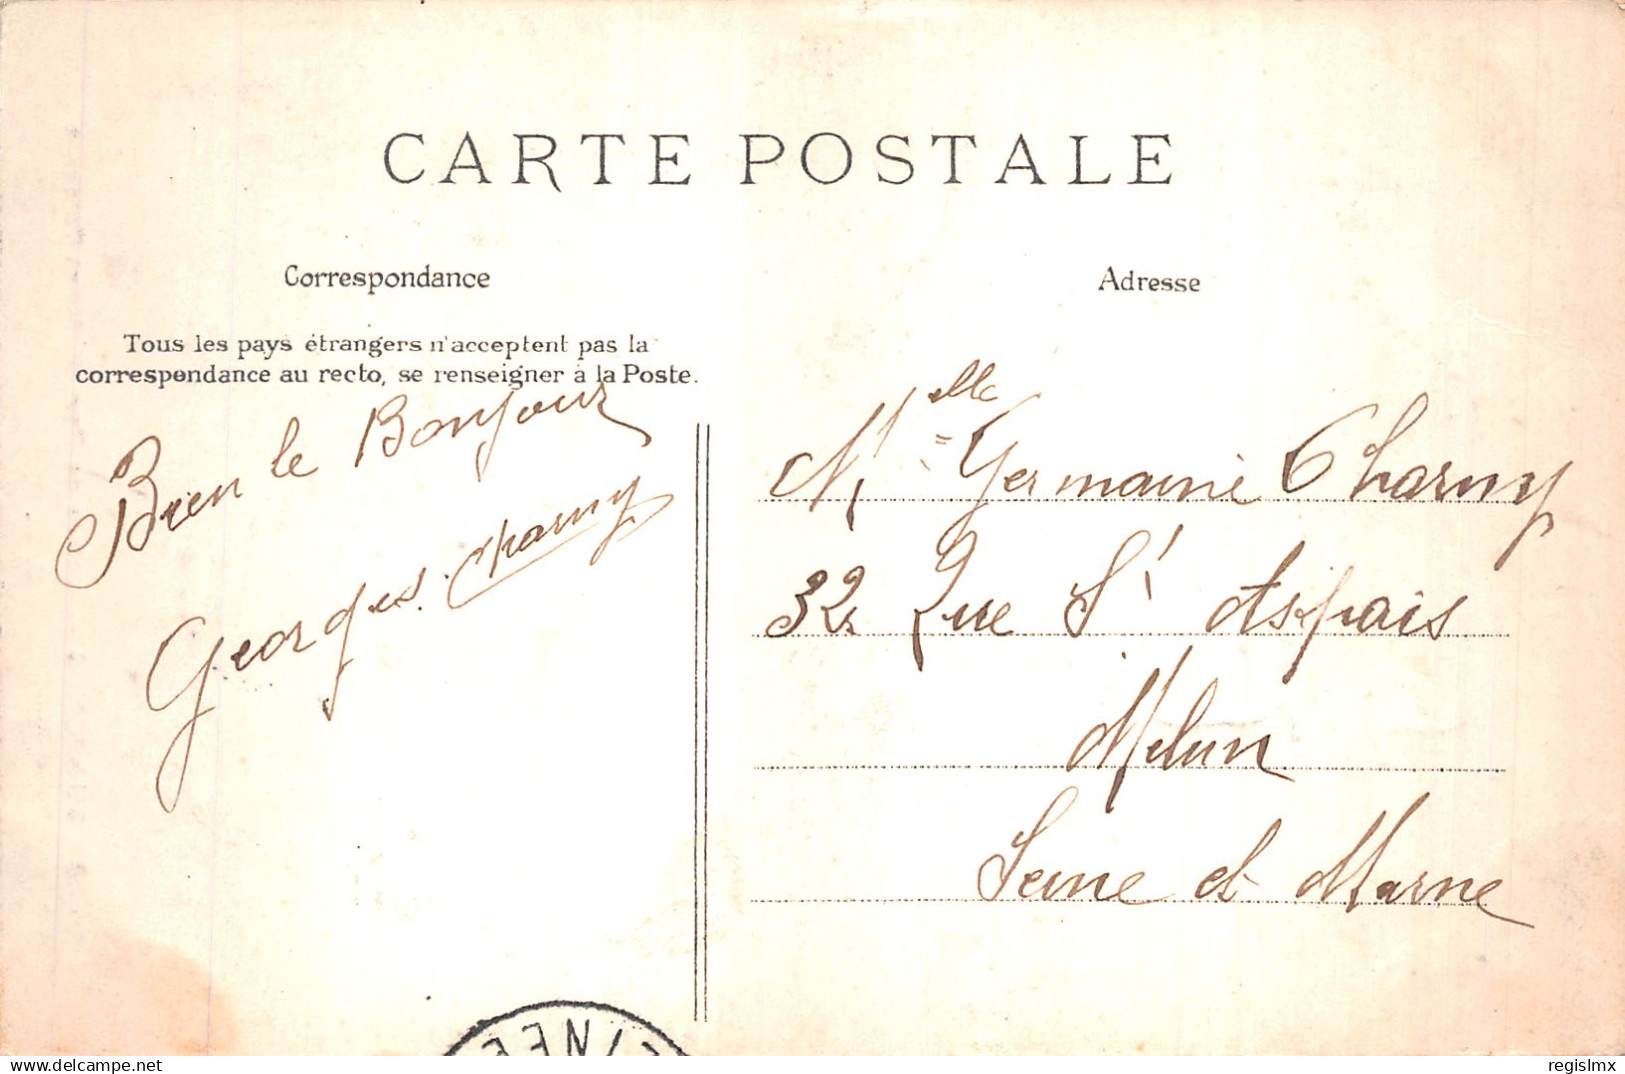 CARTE POSTALE
Correspondance
Tous les pays étrangers n'acceptent pas la
correspondance au recto, se renseigner à la Poste.
Bien le Bonjour
Georges Charny
Adresse
Melle Germaine Charny
32 Rue St Aspais
Melun
Seine et Marne
delcampe.net
regislmx